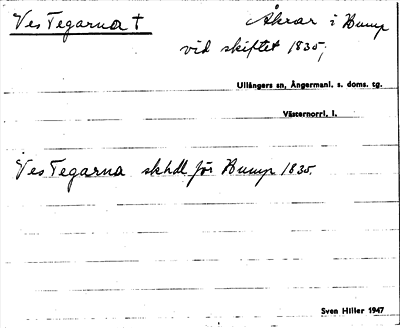 Ves Tegarna †
Åkrar i Bump
vid skiftet 1835;
Ullångers sn, Ångermanl. s. doms. tg.
Västernorrl. l.
Ves Tegarna skhdl för Bump 1835.
Sven Hiller 1947